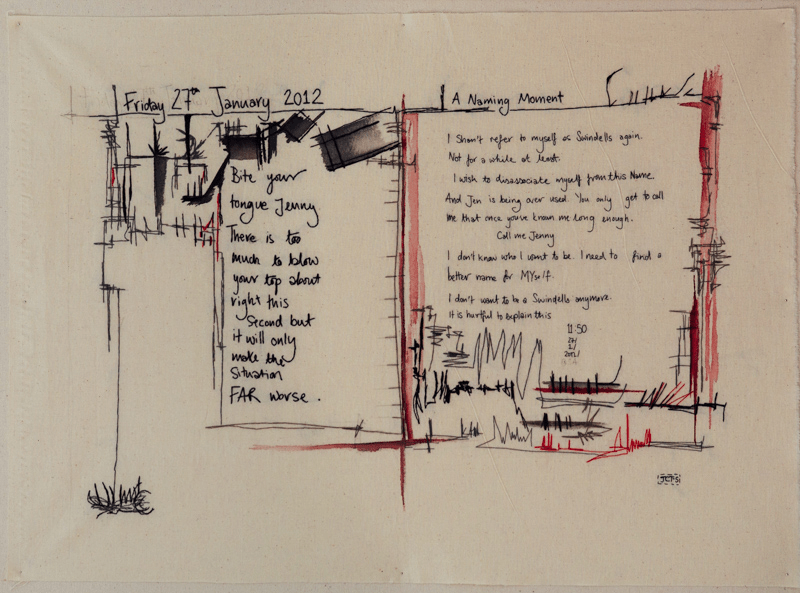 Friday 27th January 2012
Bite your
tongue Jenny
There is too
much to blow
your top about
right this
Second but
it will only
make the
Situation
FAR worse.
A Naming Moment
I Shan't refer to myself as Swindells again.
Not for a while at least.
I wish to disassociate myself from this Name.
And Jen is being over used. You only get to call
me that once you've known me long enough.
Call me Jenny
I don't know who I want to be. I need to find a
better name for MYself.
I don't want to be a Swindells anymore.
It is hurtful to explain this
11:50
27/
1/
2012/